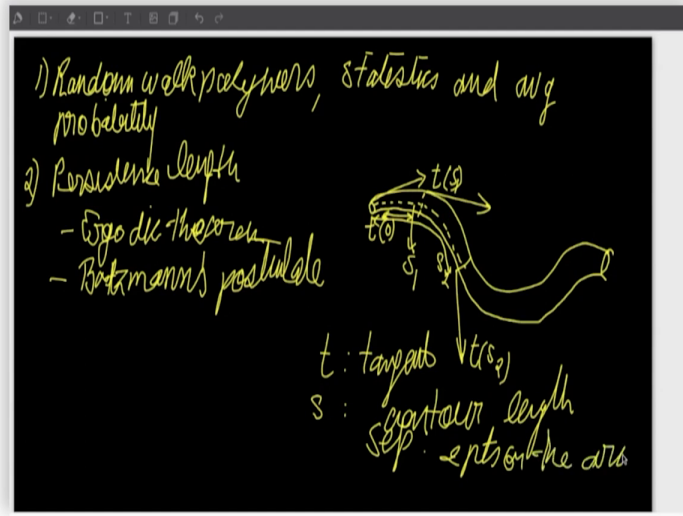 1) Random walk polymers, statistics and avg
probability
2) Persistence length
- Ergodic theorem
- Boltzmann's postulate
t(s)
t(0)
s1
s2
t(s2)
t: tangent
s: contour length
sep. epts on the arc